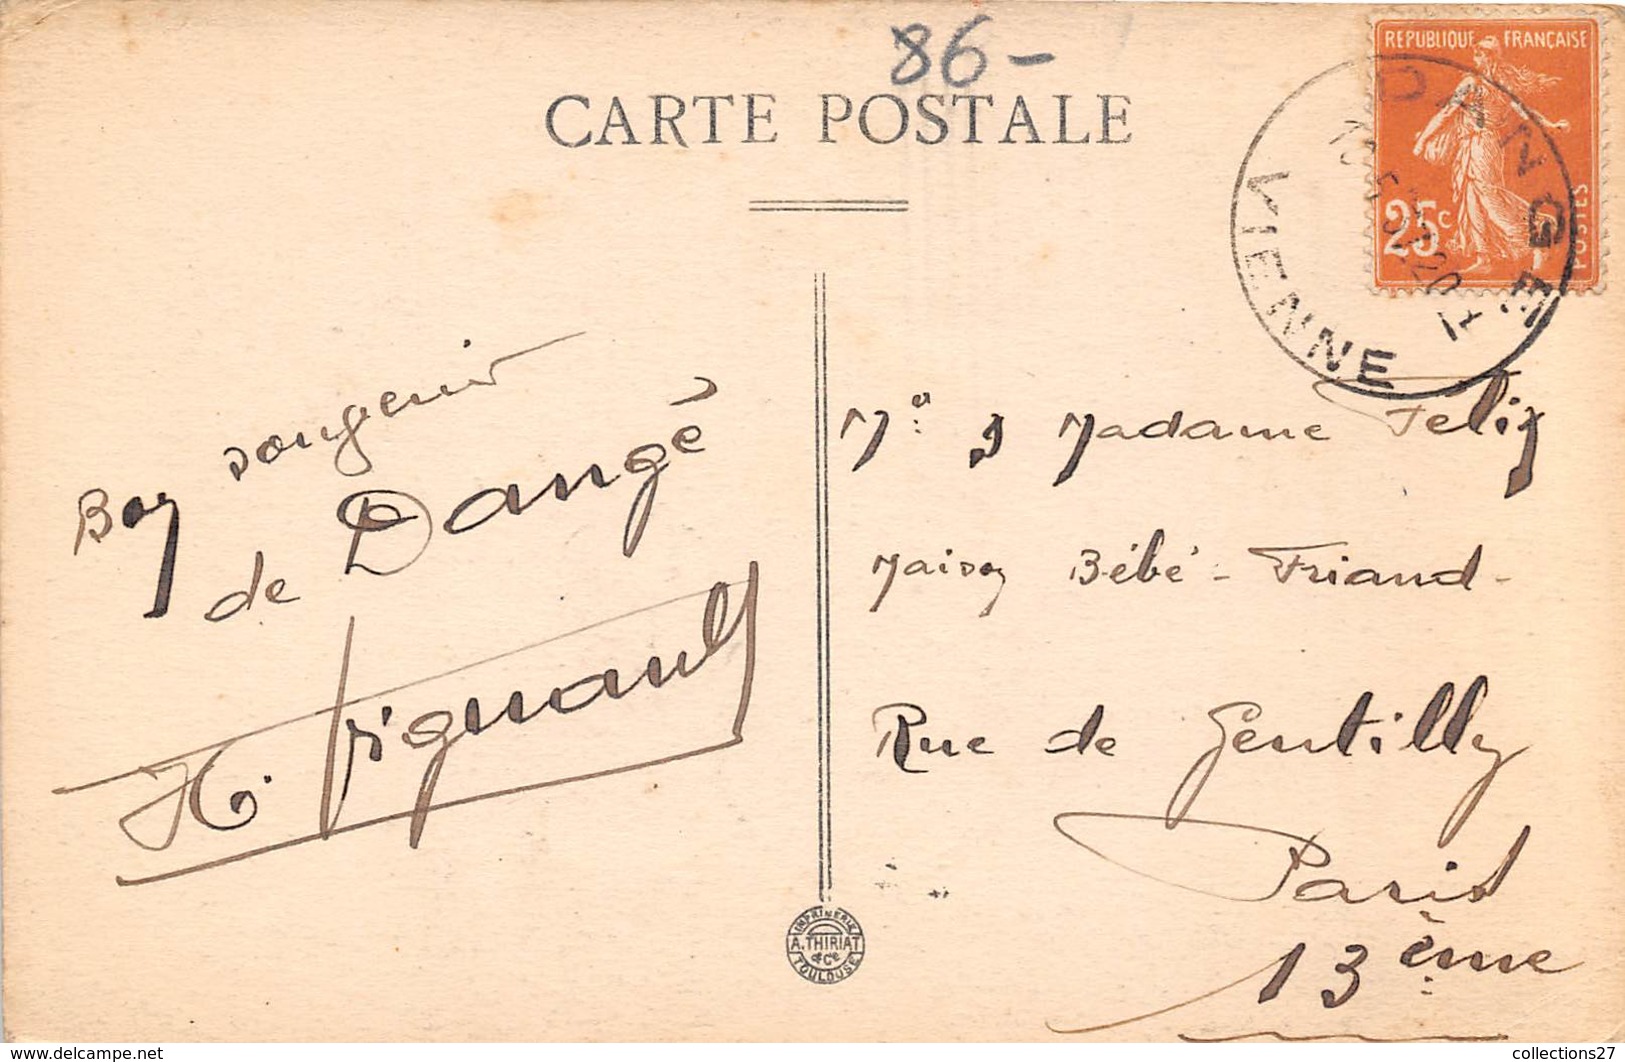 86-
CARTE POSTALE
REPUBLIQUE FRANÇAISE
25c
POSTES
DANGE
VIENNE
Bon souvenir
de Dangé
H. Pignault
Mr & Madame Felix
Maison Bébé-Friand-
Rue de Gentilly
Paris
13ème
IMPRIMERIE
A. THIRIAT
& Cie
TOULOUSE
www.delcampe.net
collections27